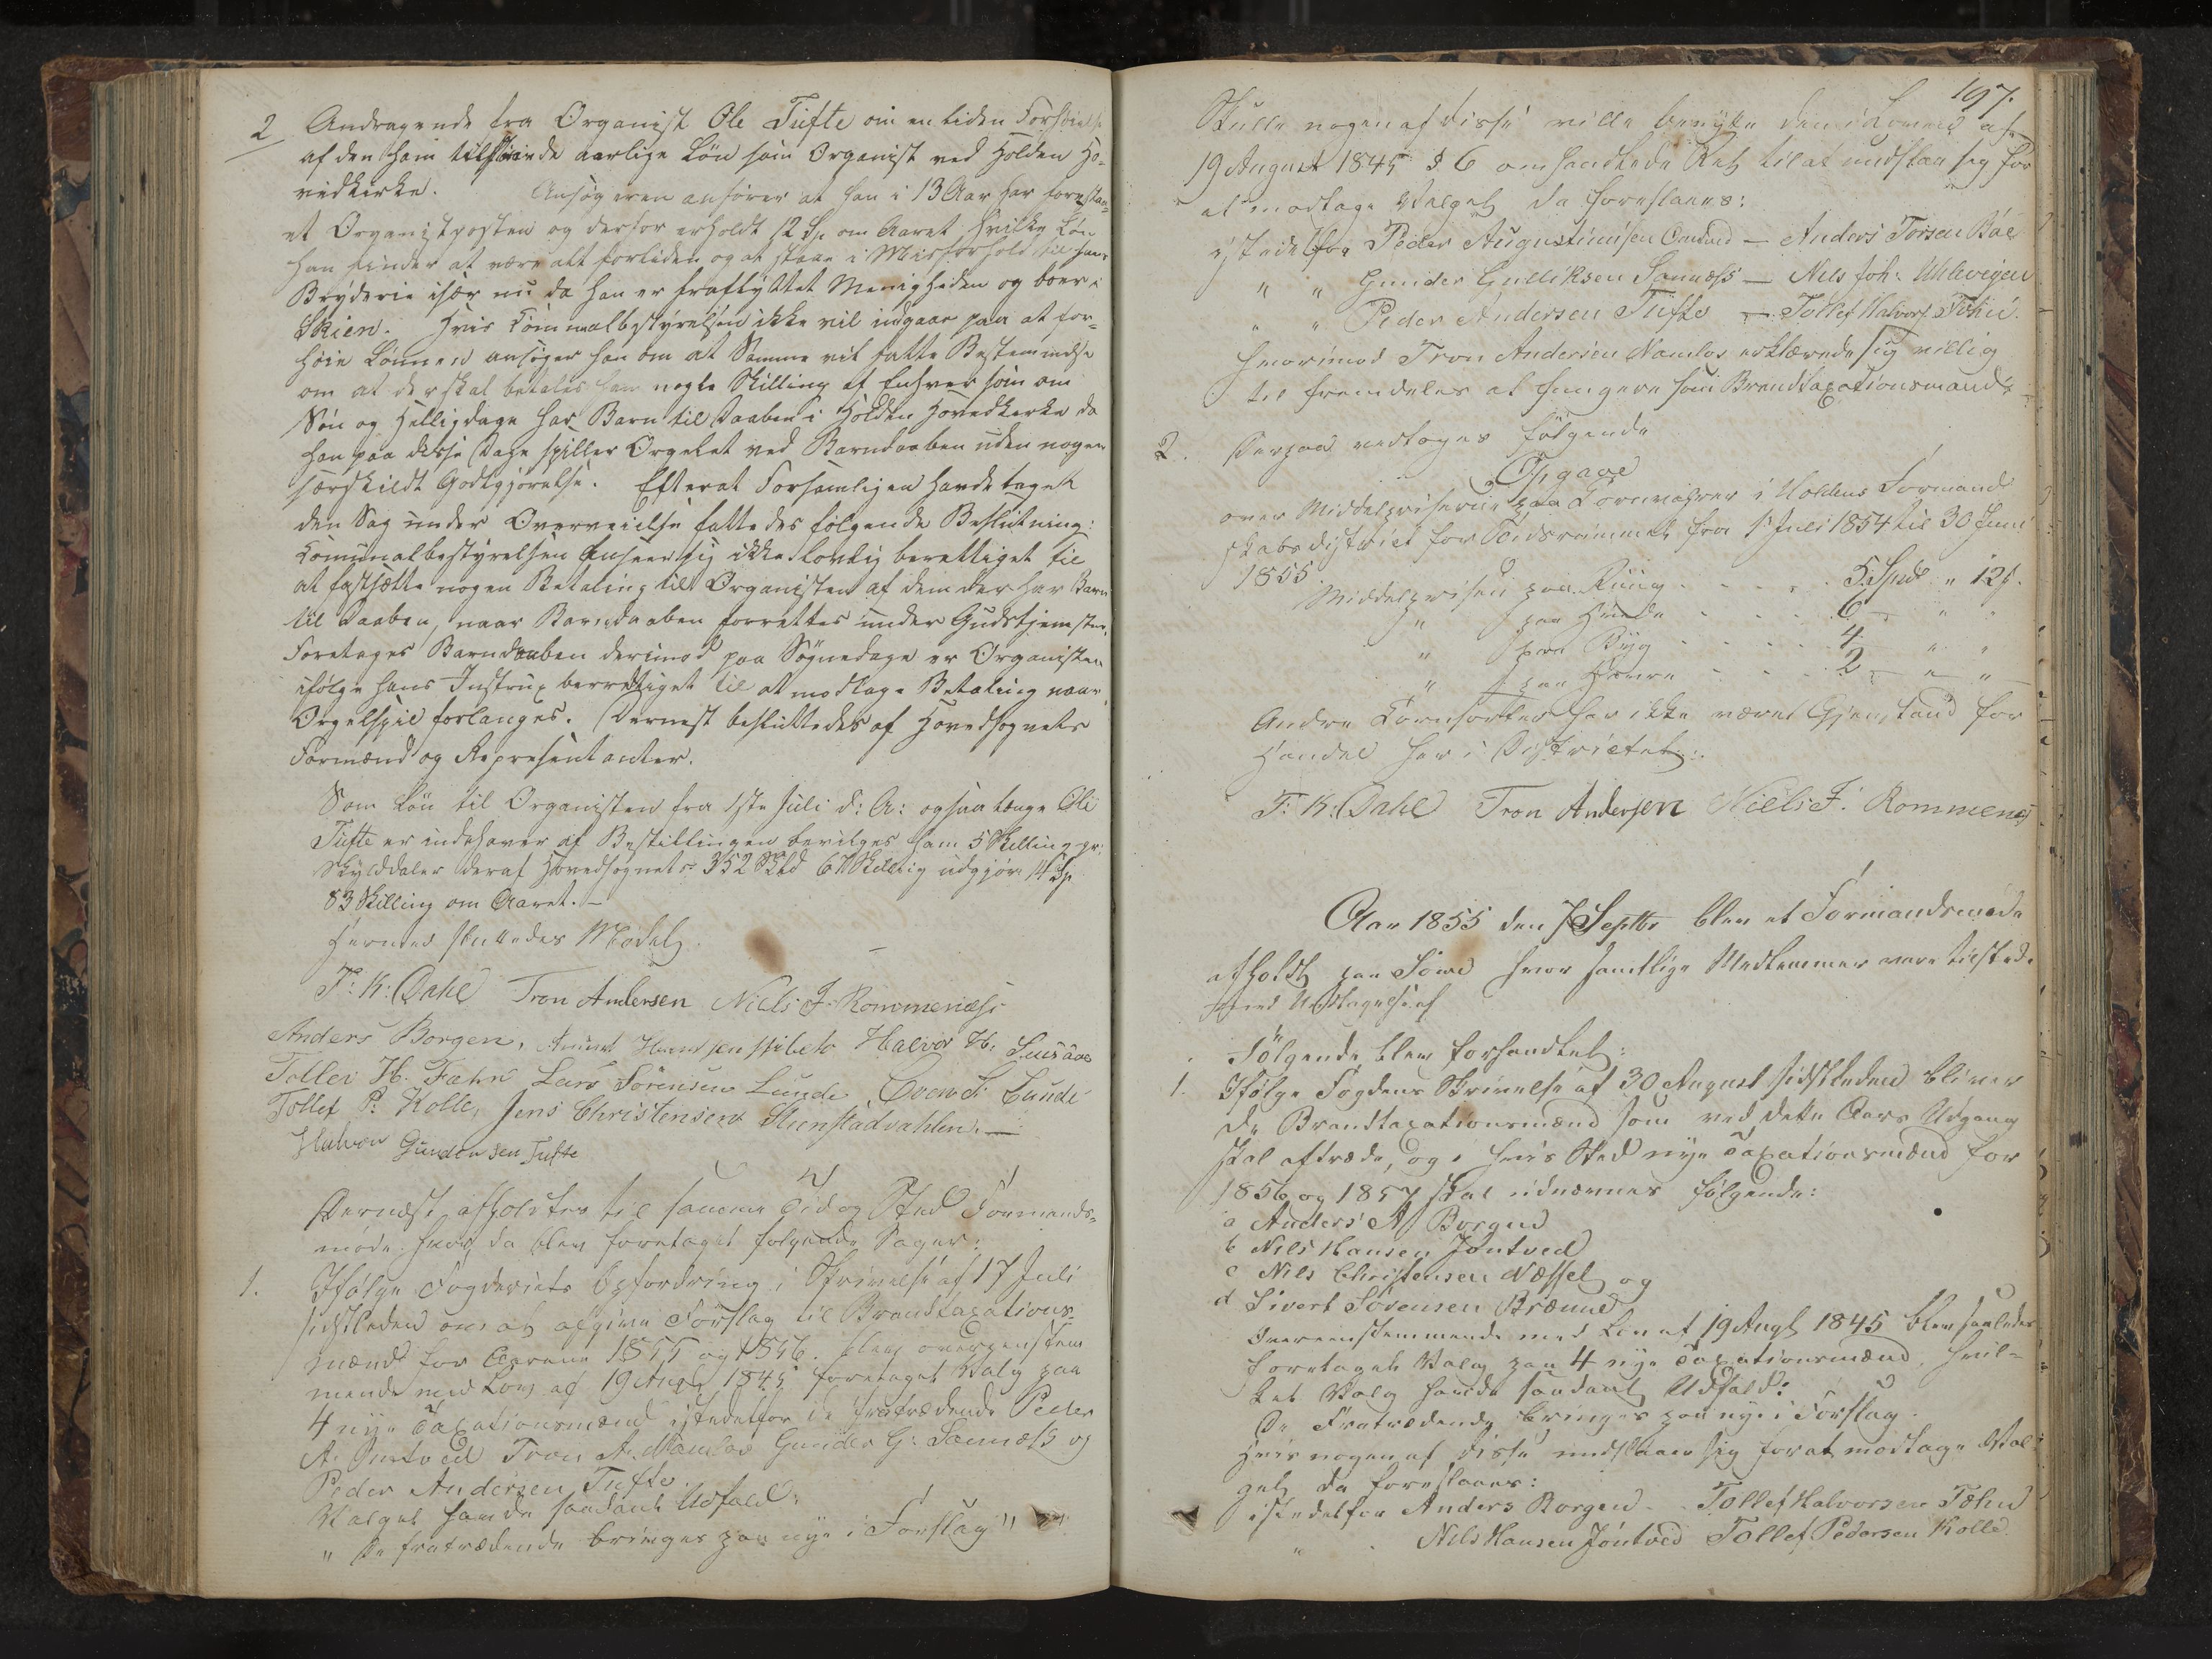 2 Andragende fra Organist Ole Tufte om en liden Forhøielse
af den ham tilstaaende aarlige Løn som Organist ved Holden Ho-
vedkirke. Ansøgeren anfører at han i 13 Aar har forestaa-
et Organistposten og derfor erholdt 12 Sp. om Aaret, hvilke Løn
han finder at være alt for liden og at staae i Misforhold til hans
Bryderie især nu da han er fraflyttet Menigheden og boer i
Skien. Hvis Communalbestyrelsen ikke vil indgaae paa at for-
høie Lønnen ansøger han om at Samme vil fatte Bestemmelse
om at der skal betales ham nogle Skilling af Enhver som om
Søn og Helligdage har Barn til Daaben i Holden Hovedkirke da
han paa disse Dage spiller Orgelet ved Barndaaben uden nogen
særskildt Godtgjørelse. Efterat Forsamligen havde taget
den Sag under Overveielse fattedes følgende Beslutning:
Communalbestyrelsen anseer sig ikke lovlig berettiget til
at fastsætte nogen Betaling til Organisten af dem der har Barn
til Daaben, naar Barndaaben forrettes under Gudstjenesten.
Foretages Barndaaben derimod paa Søgnedage er Organisten
ifølge hans Instrux berettiget til at modtage Betaling naar
Orgelspil forlanges. Dernest besluttedes af Hovedsognets
Formænd og Representanter.
Som Løn til Organisten fra 1ste Juli d: A: og saa længe Ole
Tufte er indehaver af Bestillingen bevilges ham 5 Skilling pr:
Skylddaler deraf Hovedsognets 352 Skyld 67 Skilling udgjør 14 Sp
83 Skilling om Aaret.—
Hermed sluttedes Mødet.
T: K: Dahl Tron Andersen Niels J. Rommenæss
Anders Borgen, Halvor H.
Tollev H. Fæhn Lars Sørensen Lunde, Lunde
Tollef P. Kolle, Jens Christensen Steenstadvahlen.—
Halvor Gundersen Tufte
Dernæst afholdtes til samme Tid og Sted Formands-
møde, hvor da blev foretaget følgende Sager:
1. Ifølge Fogderiets Opfordring i Skrivelse af 17 Juli
sidstleden om at afgive Forslag til Brandtaxations-
mænd for Aarene 1855 og 1856. blev overeenstem
mende med Lov af 19 Augt 1845 foretaget Valg paa
4 nye Taxationsmænd istedetfor de fratrædende Peder
A. Omtved Tron A. Namlos Gunder G: Sannæss og
Peder Andersen Tufte.
Valget havde saadant Udfald:
" De fratrædende bringes paa nye i Forslag "
197.
Skulle nogen af disse ville benytte den i Loven af
19 August 1845 § 6 omhandlede Ret til at undslaae sig for
at modtage Valget da foreslaaes:
istedetfor Peder Augustinusen Omtved — Anders Torsen Bøe
" " Gunder Gulliksen Sannæss — Nils Joh: Uhlevigen
" " Peder Andersen Tufte — Tollef Halvors. Fæhn.
hvorimod Tron Andersen Namlos erklærede sig villig
til fremdeles at fungere som Brandtaxationsmand.
2. Derpaa vedtoges følgende
Opgave
over Middelpriserne paa Kornvahrer i Holdens Formand
skabsdistrict for Tidsrummet fra 1 Juli 1854 til 30 Juni
1855.
Middelprisen paa Rug . . . . 5 Spd " 12 s.
" paa Hvede . . . . 6 — " "
" paa Byg . . . . 4 — " "
" paa Havre . . . . 2 — " "
Andre Kornsorter har ikke været Gjenstand for
Handel her i Districtet.
T: K: Dahl Tron Andersen Niels J. Rommenæs
Aar 1855 den 7 Septbr blev et Formandsmøde
afholdt paa Sowe hvor samtlige Medlemmer vare tilstede
med Undtagelse af
Følgende blev forhandlet:
1. Ifølge Fogdens Skrivelse af 30 August sidstleden bliver
de Brandtaxationsmænd som ved dette Aars Udgang
skal aftræde, og i hvis Sted nye Taxationsmænd for
1856 og 1857 skal udnævnes følgende:
a Anders A Borgen
b Nils Hansen Jøntved
c Nils Christensen Næsset og
d Sivert Sørensen Brænne
Overeenstemmende med Lov af 19 Augt 1845 blev saaledes
foretaget Valg paa 4 nye Taxationsmænd, hvil-
ket Valg havde saadant Udfald:
De Fratrædende bringes paa nye i Forslag.
Hvis nogen af disse undslaaer sig for at modtage Val
get da foreslaaes:
istedetfor Anders Borgen - Tollef Halvorsen Fæhn
" . Nils Hansen Jøntved Tollef Pedersen Kolle.